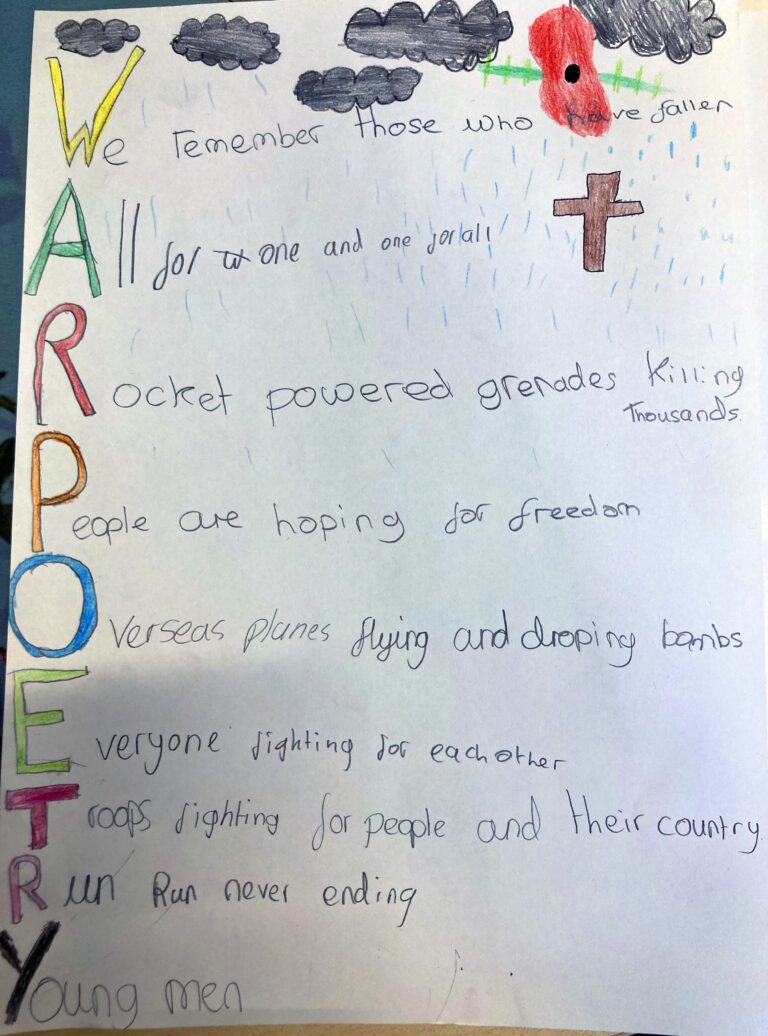 We remember those who have fallen
All for one and one for all
Rocket powered grenades killing
Thousands.
People are hoping for freedom
Overseas planes flying and droping bombs
Everyone fighting for each other
Troops fighting for people and their country
Run Run never ending
Young men